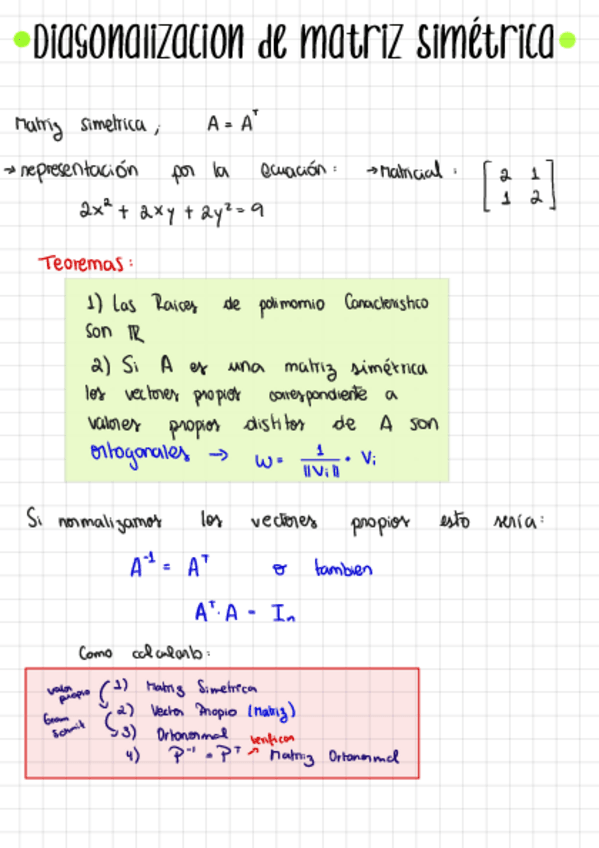 Diagonalizacion de matriz simétrica
Matriz simetrica, A = A^T
→ representación por la ecuación: → Matricial: [2 1
1 2]
2x² + 2xy + 2y² = 9
Teoremas:
1) Las Raices de polinomio Caracteristico
son ℝ
2) Si A es una matriz simétrica
los vectores propios correspondiente a
valores propios distitos de A son
ortogonales → w = 1/||Vi|| · Vi
Si normalizamos los vectores propios esto sería:
A^-1 = A^T o tambien
A^T · A = In
Como calcularlo:
valor propio 1) Matriz Simetrica
2) Vector Propio (Matriz)
Gram Schmit 3) Ortonormal verificar
4) P^-1 = P^T → Matriz Ortonormal